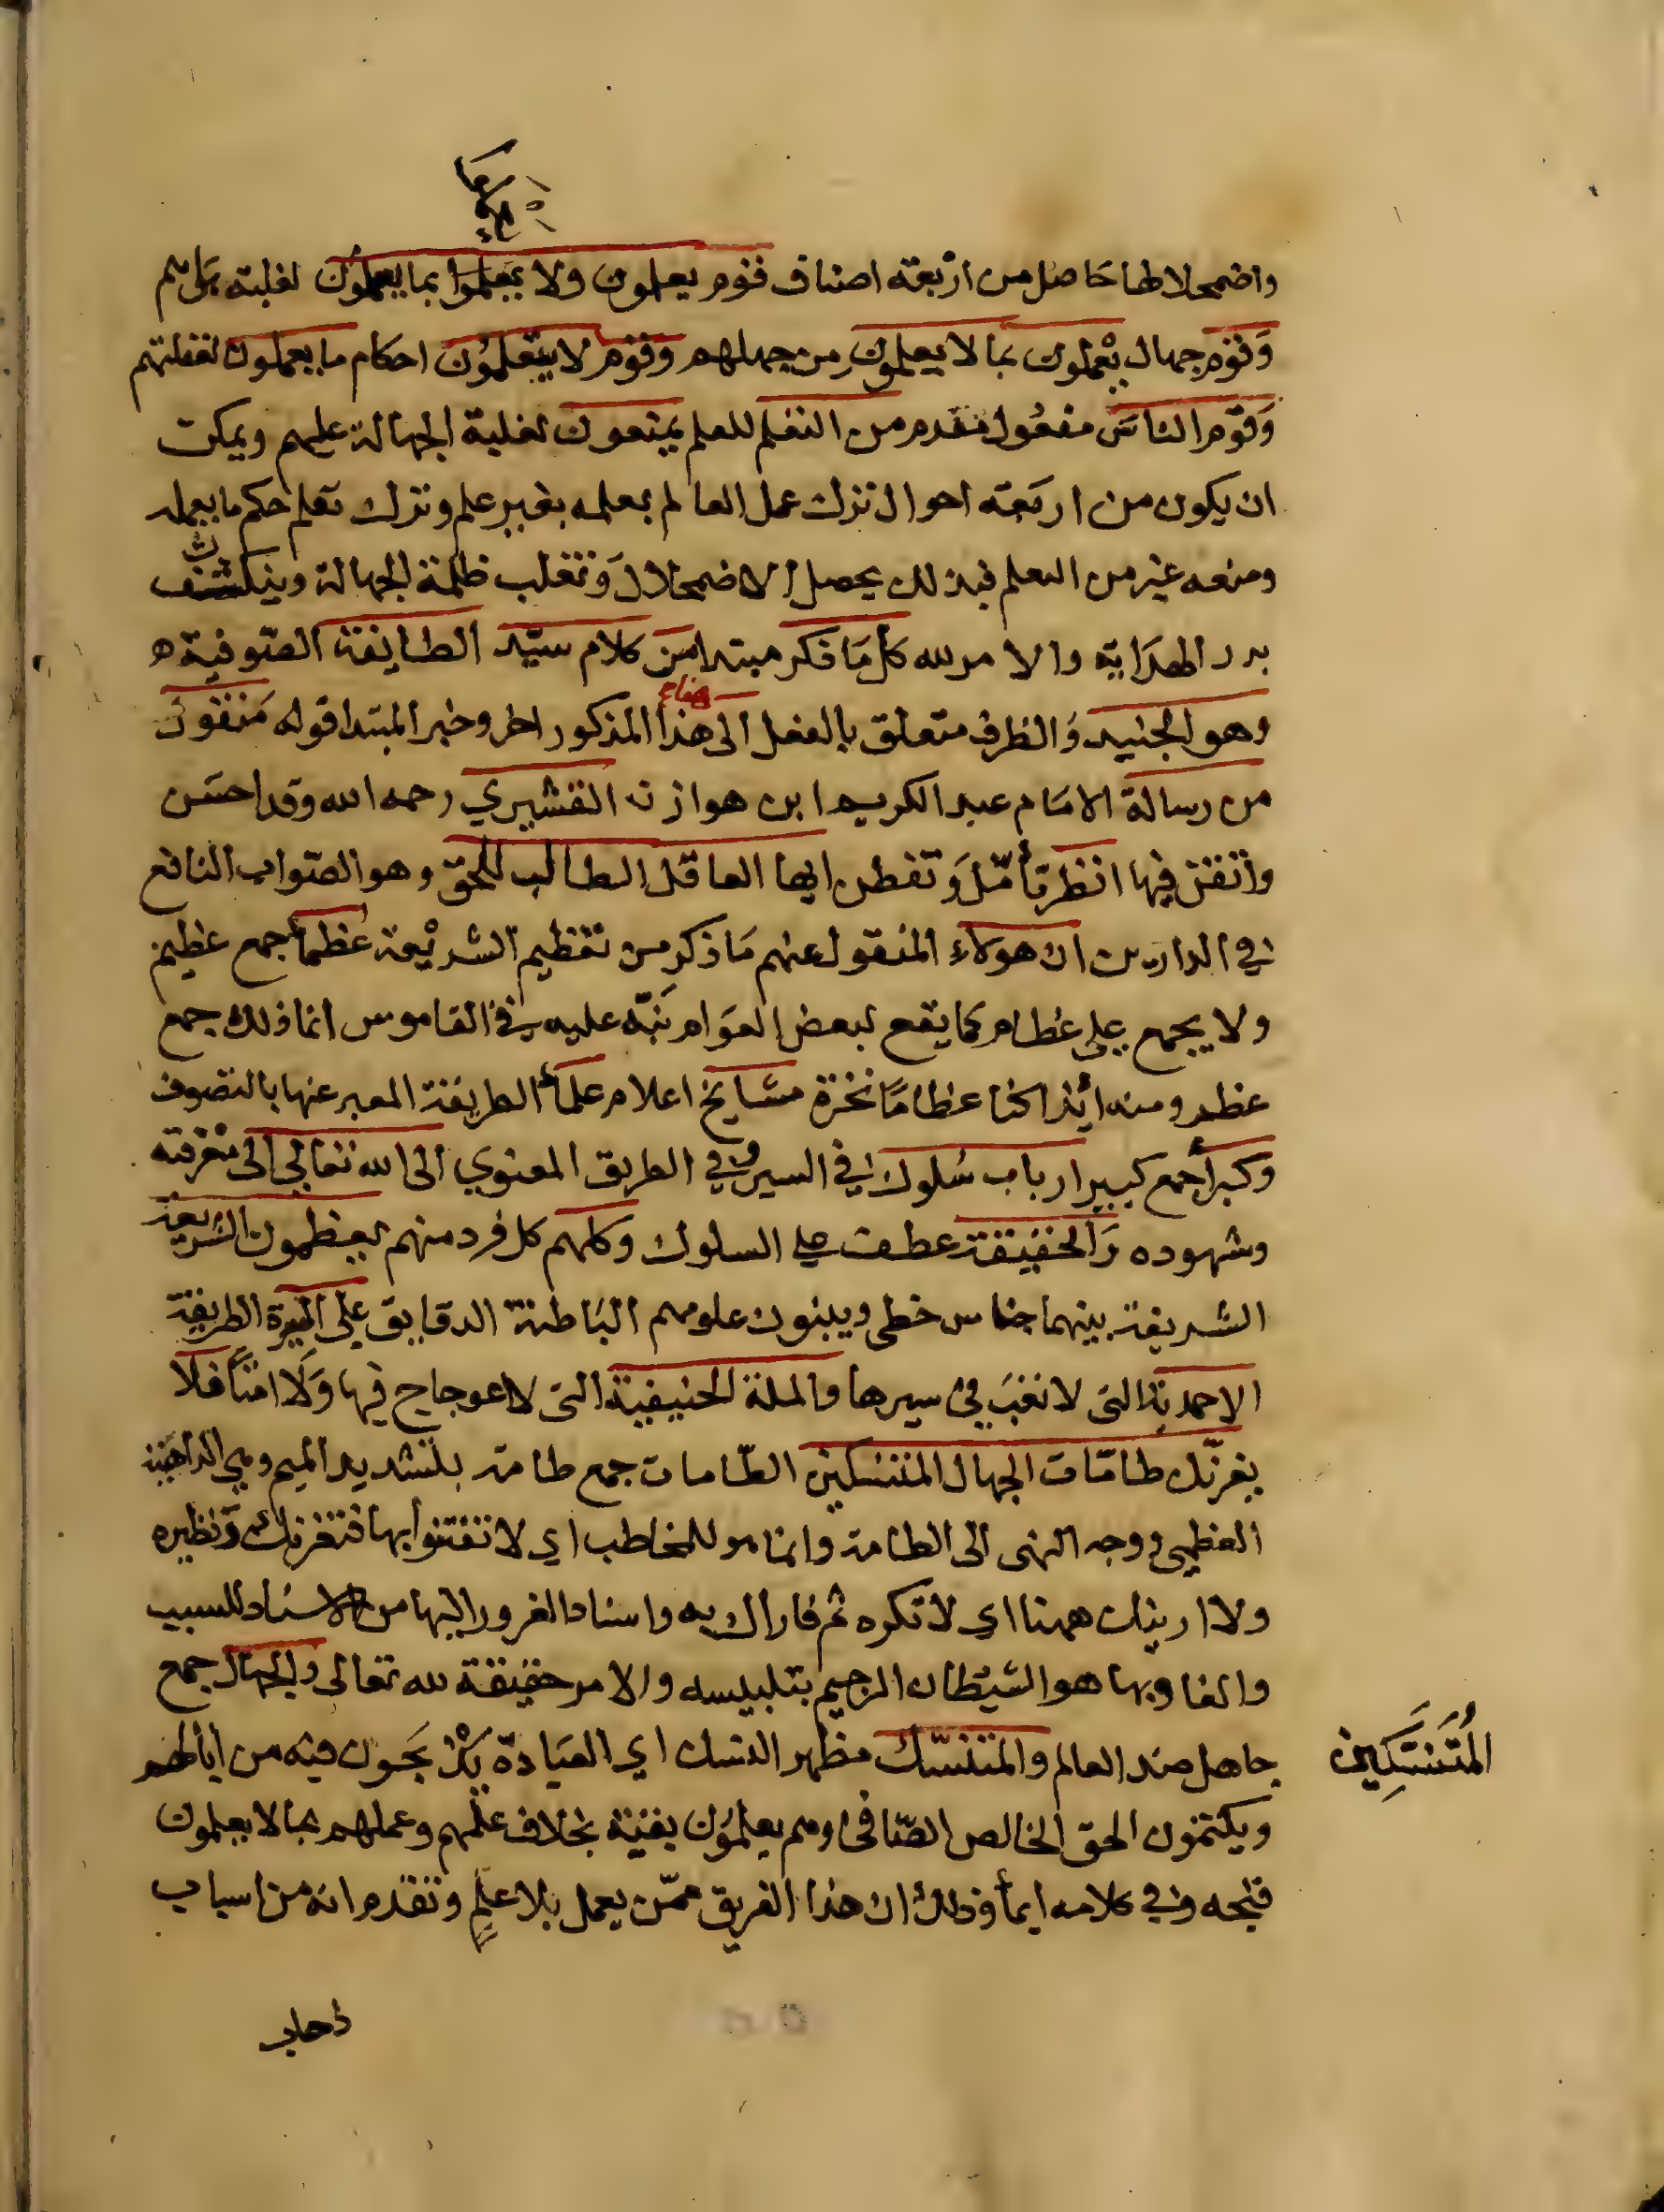 واضمحلالها حاصل من اربعة اصناف قوم يعلمون ولا يعملوا بما يعلمون لغلبة
وَقوم جهال يعملون بما لا يعلمون من جهلهم وقوم لا يتعلمُون احكام ما يعملون لغفلتهم
وَقوم الناسَ مفعُول مقدم من التعلم للعلم يمنعون لغلبة الجهالة عليهم ويمكن
ان يكون من اربَعة احوال ترك عمل العالم بعلمه بغير علم وترك تعلم حكم ما يعمله
ومنعه غيره من التعلم فبذلك يحصل الاضمحلال وَتغلب ظلمة الجهالة وينكسف
بدر الهدَاية والامر لله كل مَا ذكر مبتدا من كلام سيّد الطايفة الصّوفية
وهو الجنيد وَالظرف متعلق بالفعل الى هذا المذكور اخر وخبر المبتدا قوله مَنقول
من رسالة الامَام عبد الكريم ابن هوازن القشيري رحمه الله وقد احسَن
واتقن فيها انظر تأمّل وَتفطن ايها العاقل الطالب للحق وهو الصّواب النافع
في الدارين ان هولاء المنقول عنهم مَا ذكر من تعظيم الشريعة عُظمأ جمع عظيم
ولا يجمع على عظام كما يقع لبعض العوَام نبّه عليه في القاموس انما ذلك جمع
عظم ومنه ائذا كنا عظامًا نخرة مشايخ اعلام علمأ الطريقة المعبر عنها بالتصوف
وكبرأ جمع كبير ارباب سُلوك في السير في الطريق المعنوي الى الله تعالى الى مَعْرفته
وشهوده وَالحقيقة عطف على السلوك وكلهم كل فرد منهم يعظمون الشريعة
الشريفة بينهما جناس خطي ويبنون علومهم البَاطنة الدقايق على السيرة الطريقة
الاحمدية التى لا تعبَ في سيرها والملة الحنيفية التى لا عوجاج فيها وَلا امتًا فلا
يغرنّك طامّات الجهال المتنسكين الطّامات جمع طامة بتشديد الميم وهي الداهية
العظمى ووجه النهى الى الطامة وانما هو للمخاطب اي لا تفتنوا بها فتغرنك وَنظيره
ولا ارينك ههنا اي لا تكره ثم فاراك به واسناد الغرور اليها من الاسناد للسبب
والغار بها هو الشيْطان الرجيم بتلبيسه والامر حقيقة لله تعالى والجهال جمع
جاهل ضد العالم والمتنسّك مظهر النسك اي العبَادة
المُتَنَسِّكِين
ويكتمون الحق الخالص الصّافى وهم يعلمُون بخلاف علمهم وعملهم بما لا يعلمون
قبحه وفي كلامه ايمأ وذلك ان هذا الفريق ممّن يعمل بلا علم وتقدم انه من اسباب